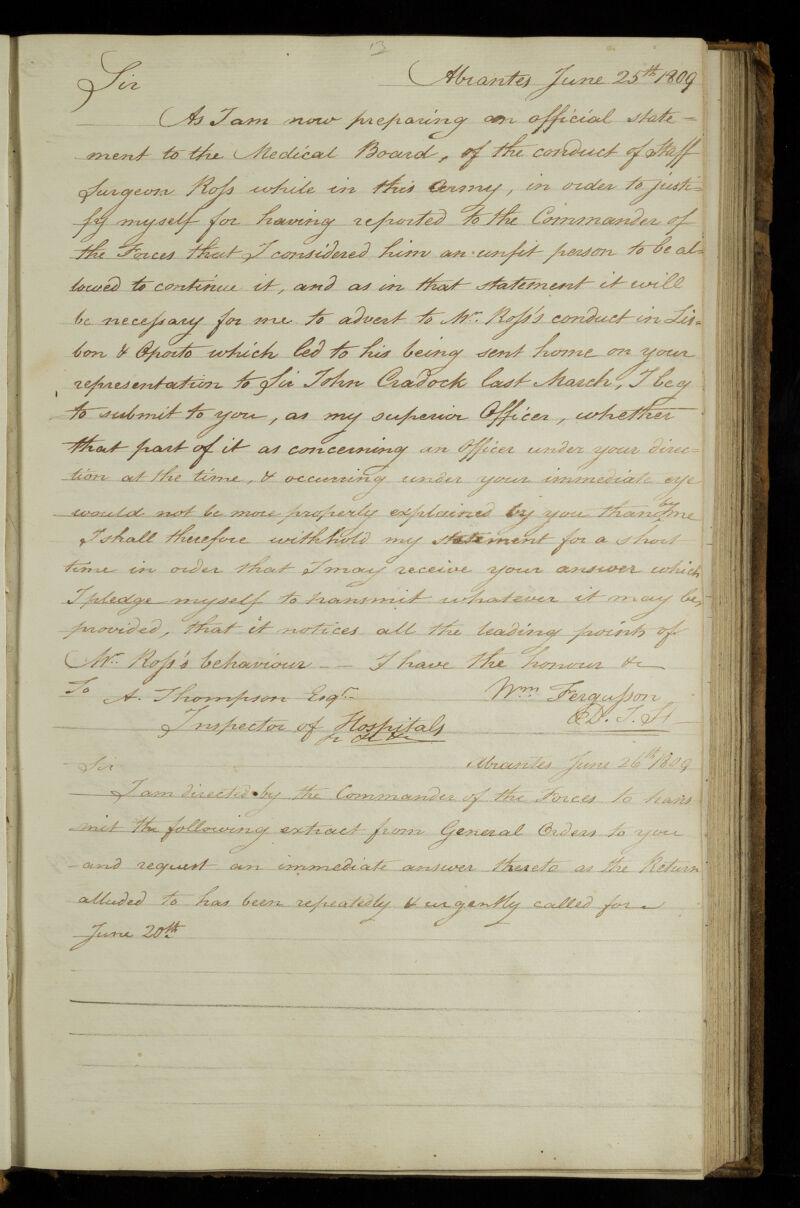 13
Sir Abrantes June 25th 1809
As I am now preparing an official state=
ment to the Medical Board, of the conduct of Staff
Surgeon Ross while in this Army, in order to justi=
fy myself for having reported to the Commander of
the Forces that I considered him an unfit person to be al=
lowed to continue it, and as in that statement it will
be necessary for me to advert to Mr. Ross's conduct in Lis=
bon & Oporto which led to his being sent home on your
representation to Sir John Cradock last March, I beg
to submit to you, as my superior Officer, whether
that part of it as concerning an Officer under your direc=
tion at the time, & occurring under your immediate eye
would not be more properly explained by you than by me
I shall therefore withhold my statement for a short
time in order that I may receive your answer which
I pledge myself to transmit whatever it may be,
provided, that it notices all the leading points of
Mr. Ross's behaviour -- I have the honour &c
To A. Thompson Esqr. Wm Fergusson
Inspector of Hospitals D. I. H
&c &c &c
Sir Abrantes June 26th 1809
I am directed by the Commander of the Forces to trans
mit the following extract from General Orders to you
and request an immediate answer thereto as the Return
alluded to has been repeatedly & urgently called for -
June 20th